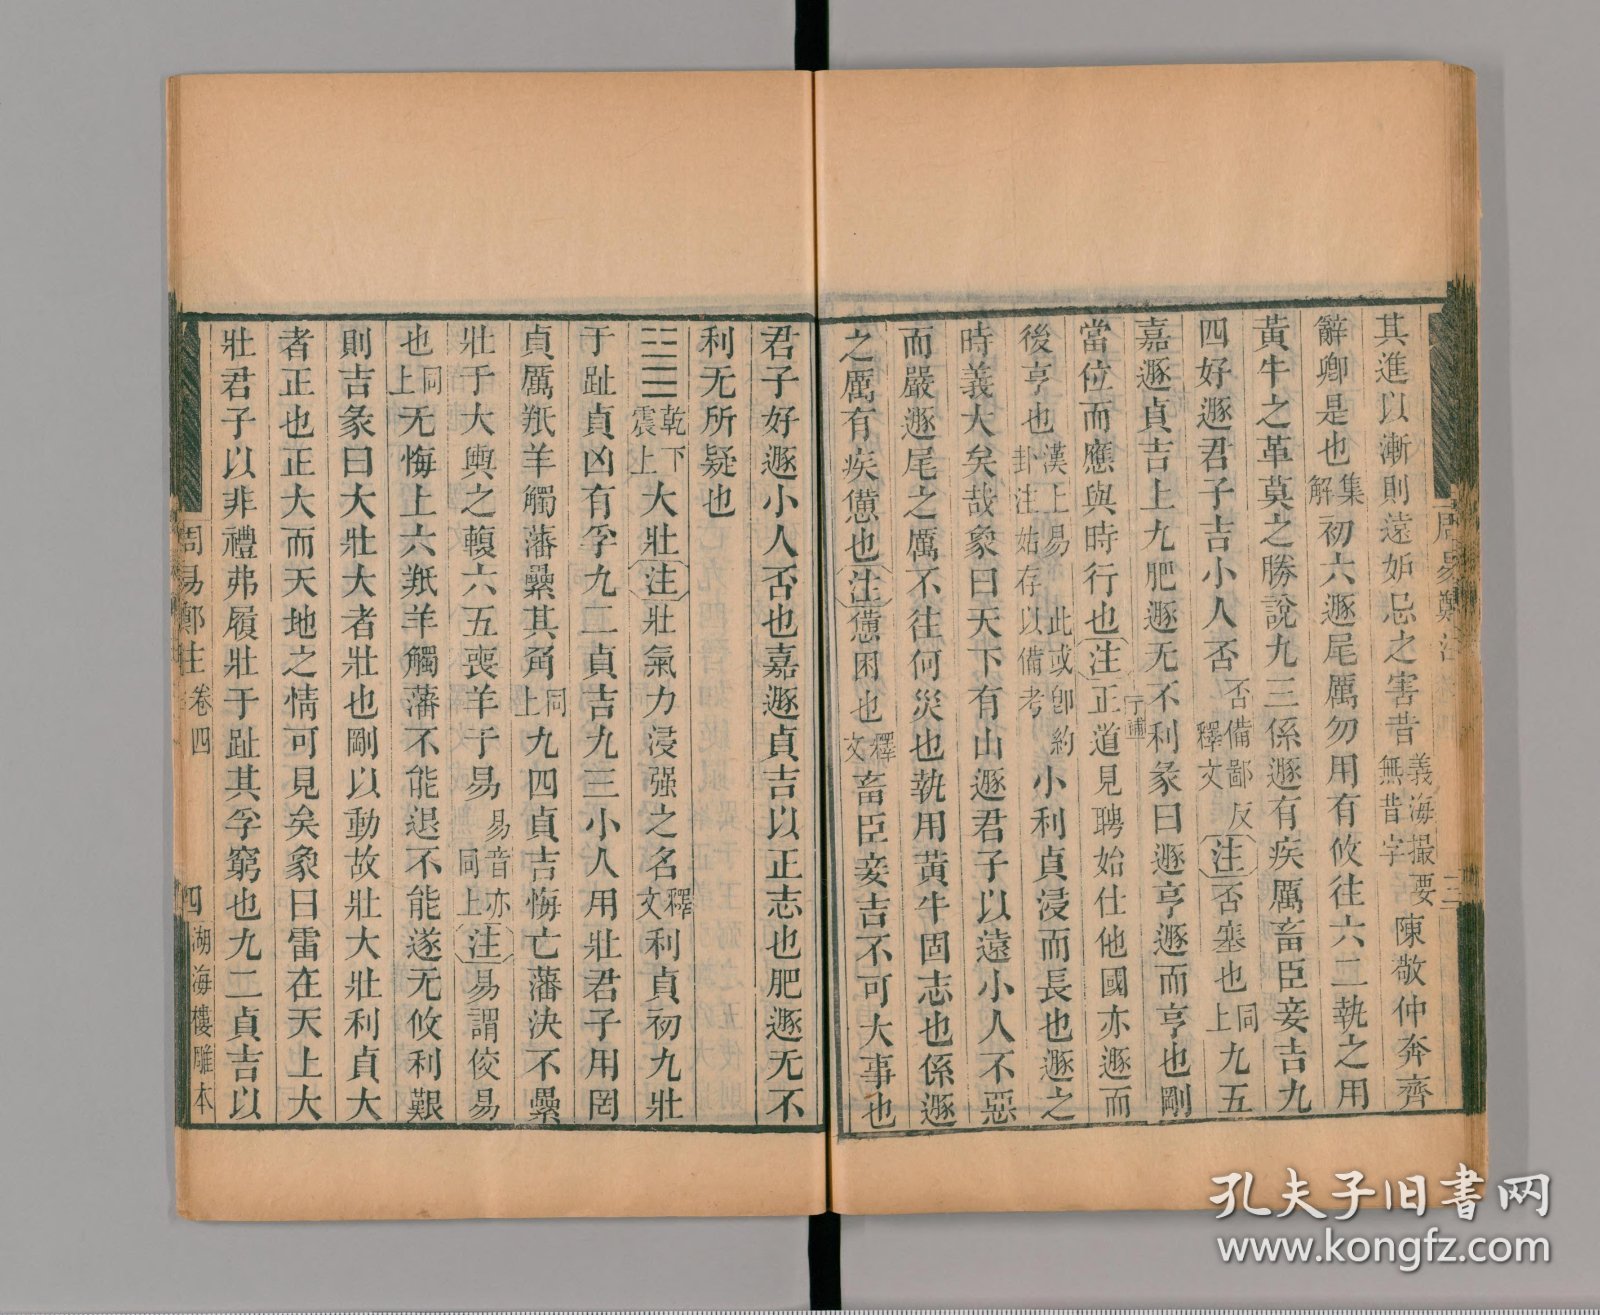 其進以漸則遠妒忌之害昔義海撮要無昔字陳敬仲奔齊
辭卿是也集解初六遯尾厲勿用有攸往六二執之用
黃牛之革莫之勝說九三係遯有疾厲畜臣妾吉九
四好遯君子吉小人否否備鄙反釋文注否塞也同上九五
嘉遯貞吉上九肥遯无不利彖曰遯亨遯而亨也剛
當位而應與時行也注正道見聘始仕他國亦遯而
後亨也漢上易卦注姑存以備考此或卽約小利貞浸而長也遯之
時義大矣哉象曰天下有山遯君子以遠小人不惡
而嚴遯尾之厲不往何災也執用黃牛固志也係遯
之厲有疾憊也注憊困也釋文畜臣妾吉不可大事也
君子好遯小人否也嘉遯貞吉以正志也肥遯无不
利无所疑也
乾下震上大壯注壯氣力浸强之名釋文利貞初九壯
于趾貞凶有孚九二貞吉九三小人用壯君子用罔
貞厲羝羊觸藩纍其角同上九四貞吉悔亡藩決不纍
壯于大輿之輹六五喪羊于易易音亦同上注易謂佼易
也同上无悔上六羝羊觸藩不能退不能遂无攸利艱
則吉彖曰大壯大者壯也剛以動故壯大壯利貞大
者正也正大而天地之情可見矣象曰雷在天上大
壯君子以非禮弗履壯于趾其孚窮也九二貞吉以
周易鄭注 卷四 四 湖海樓雕本
孔夫子旧書网
www.kongfz.com